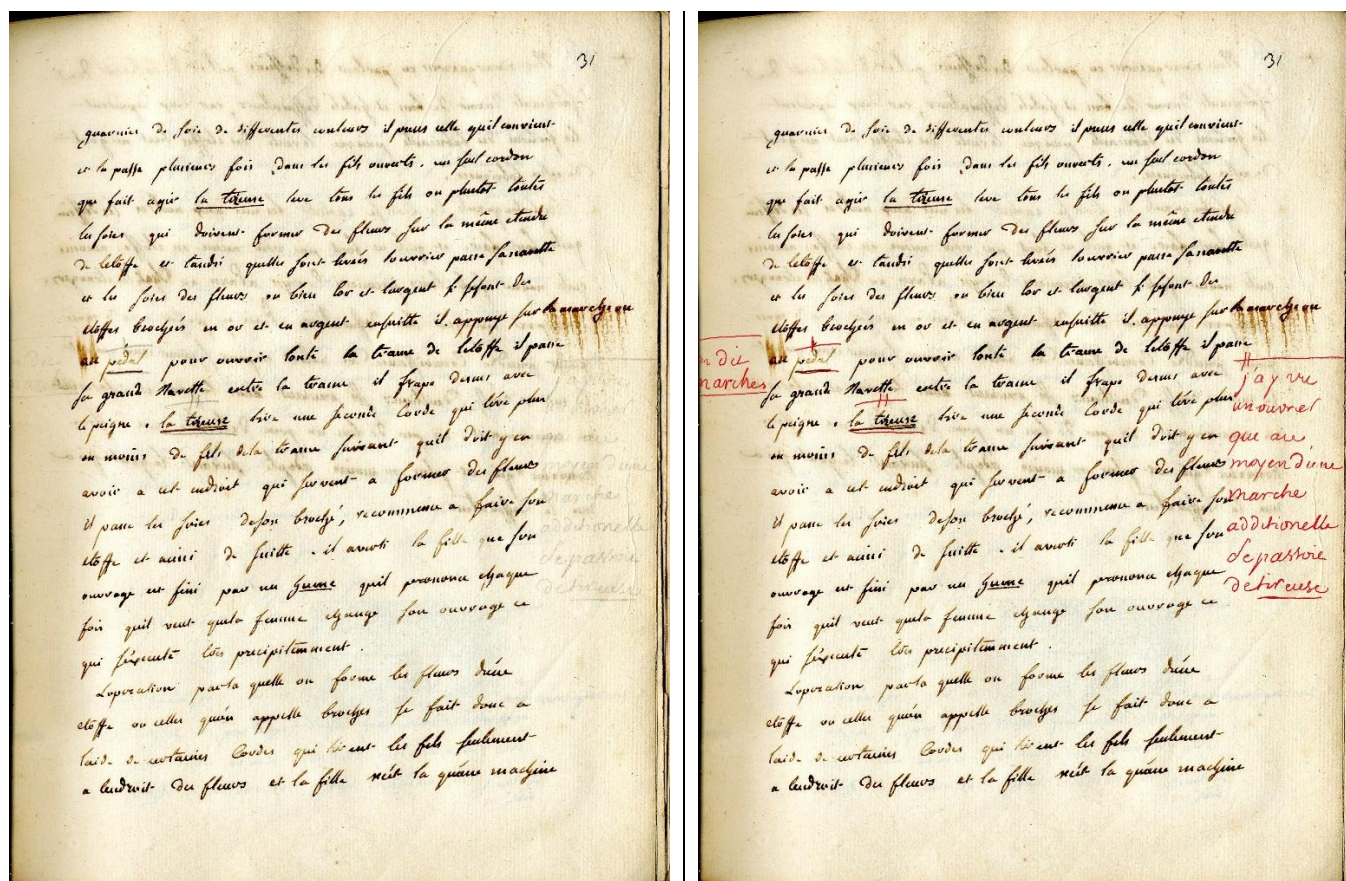 31
guarnies de soie de differentes couleurs il prens celle quil convient
et la passe plusieures fois dans les fils ouverts. un seul cordon
que fait agir la tireuse leve tous les fils ou plustot toutes
les soies qui doivent former des fleurs sur la même etendu
de letoffe et tandis quelles sont levées louvrier passe sa navette
et les soies des fleurs ou bien lor et largent si se font des
etoffes brochées en or et en argent ensuitte il appuye sur la marche ou
au pédal pour ouvrir toute la trame de letoffe il passe
sa grande Navette entre la trame il frape dessus avec
le peigne. la tireuse tire une seconde Corde qui léve plus
ou moins de fils dela trame suivant quil doit y en
avoir a cet endroit qui servent a former des fleurs
il passe les soies deson broché, recommence a faire son
etoffe et ainsi de suitte. il averti la fille que son
ouvrage est fini par un hume quil prononce chaque
fois quil veut quela femme change son ouvrage ce
qui séxecute très precipitemment.
Loperation parla quelle on forme les fleurs dúne
etoffe ou celles quón appelle brochés se fait donc a
laide de certaines Cordes qui tirent les fils seulement
a lendroit des fleurs et la fille nést la quúne machine
31
guarnies de soie de differentes couleurs il prens celle quil convient
et la passe plusieures fois dans les fils ouverts. un seul cordon
que fait agir la tireuse leve tous les fils ou plustot toutes
les soies qui doivent former des fleurs sur la même etendu
de letoffe et tandis quelles sont levées louvrier passe sa navette
et les soies des fleurs ou bien lor et largent si se font des
etoffes brochées en or et en argent ensuitte il appuye sur la marche ou
au pédal pour ouvrir toute la trame de letoffe il passe
n dit
marches
sa grande Navette entre la trame il frape dessus avec
le peigne. la tireuse tire une seconde Corde qui léve plus
ou moins de fils dela trame suivant quil doit y en
avoir a cet endroit qui servent a former des fleurs
il passe les soies deson broché, recommence a faire son
etoffe et ainsi de suitte. il averti la fille que son
ouvrage est fini par un hume quil prononce chaque
fois quil veut quela femme change son ouvrage ce
qui séxecute très precipitemment.
Loperation parla quelle on forme les fleurs dúne
etoffe ou celles quón appelle brochés se fait donc a
laide de certaines Cordes qui tirent les fils seulement
a lendroit des fleurs et la fille nést la quúne machine
j'ay vu
un ouvrier
que au
moyen d'une
marche
additionelle
se passoie
de tireuse